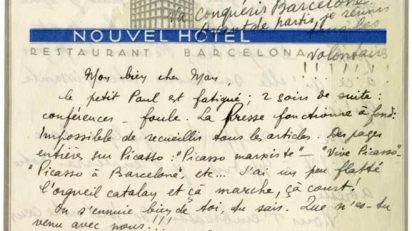 Conquéris Barcelone.
je réunis
tous les
NOUVEL HÔTEL
RESTAURANT BARCELONA
Mon bien cher Man,
le petit Paul est fatigué : 2 soirs de suite :
conférences - foule. La presse fonctionne à fond.
Impossible de recueillir tous les articles. Des pages
entières sur Picasso : "Picasso marxiste" — "Vive Picasso"
"Picasso à Barcelone", etc... J'ai un peu flatté
l'orgueil catalan et ça marche, ça court!
On s'ennuie bien de toi, tu sais. Que n'es-tu
venu avec nous!!!